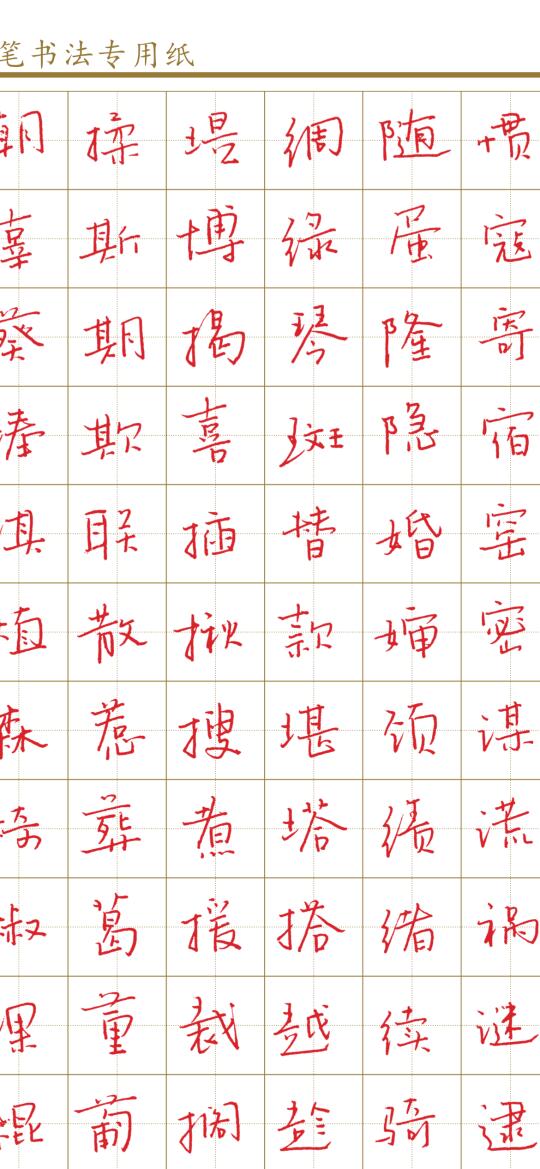 笔书法专用纸
惯寇寄宿窑密谋谎祸谜逮
随蛋隆隐婚婶颈绩绪续骑
绸绿琴斑替款堪塔搭越趁
堤博揭喜插揪搜煮援裁搁
揉斯期欺联散惹葬葛董葡
朝辜葵棒棋植森椅椒棵棍